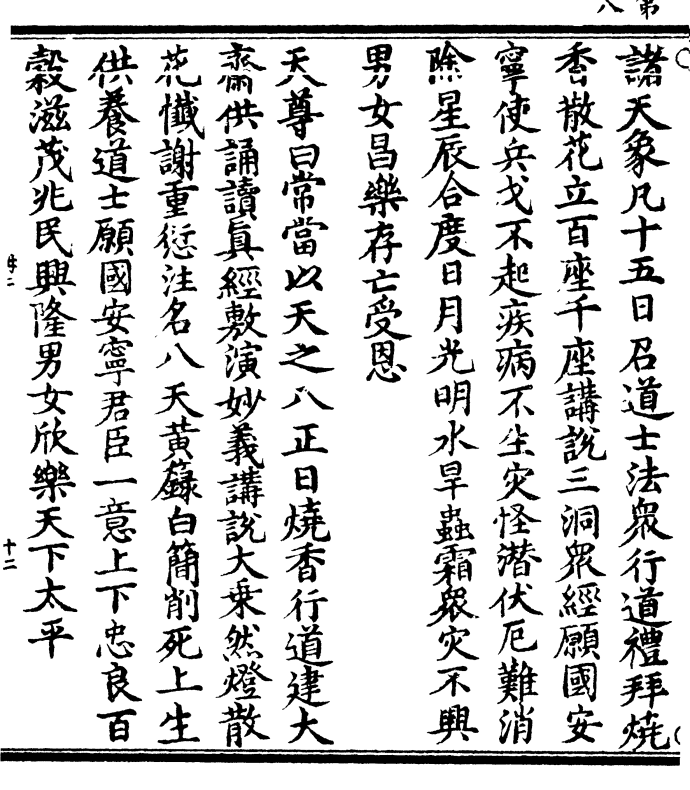 諸天象凡十五日召道士法眾行道禮拜燒
香散花立百座千座講說三洞眾經願國安
寧使兵戈不起疾病不生灾怪潜伏厄難消
除星辰合度日月光明水旱蟲霜眾灾不興
男女昌樂存亡受恩
天尊曰常當以天之八正日燒香行道建大
齋供誦讀真經敷演妙義講說大乗然燈散
花懺謝重愆注名八天黄籙白簡削死上生
供養道士願國安寧君臣一意上下忠良百
穀滋茂兆民興隆男女欣樂天下太平
十二